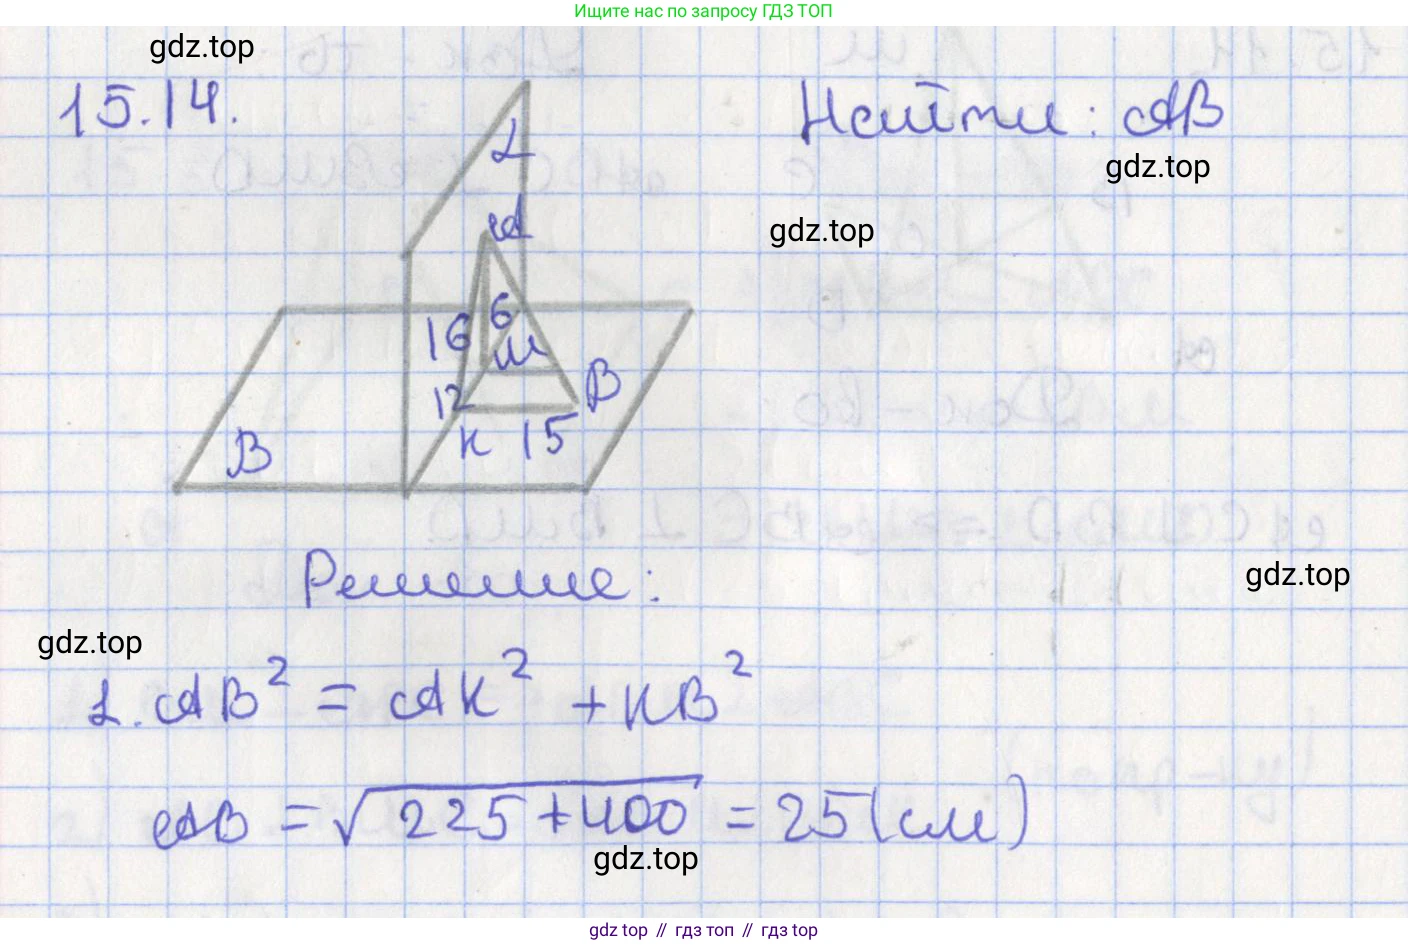 Ищите нас по запросу ГДЗ ТОП
gdz.top
15.14.
Найти: AB
gdz.top
gdz.top
L
A
6
16
M
B
12
K
15
B
Решение:
gdz.top
gdz.top
1. AB² = AK² + KB²
AB = √225 + 400 = 25 (см)
gdz.top
gdz top // гдз топ // gdz top